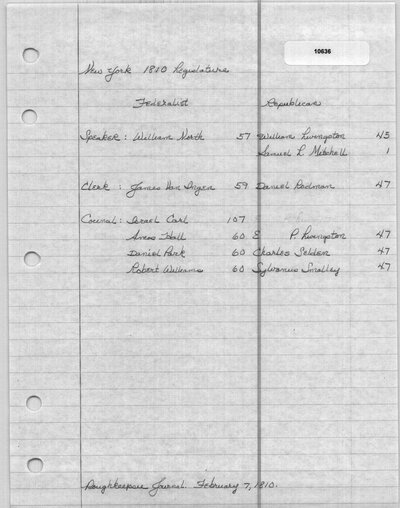 10636
New York 1810 Legislature
Federalist Republican
Speaker: William North 57 William Livingston 45
Samuel L Mitchell 1
Clerk: James Van Ingen 59 Daniel Rodman 47
Council: Israel Carl 107
Amos Hall 60 E P. Livingston 47
Daniel Park 60 Charles Selden 47
Robert Williams 60 Sylvanus Smalley 47
Poughkeepsie Journal. February 7, 1810.